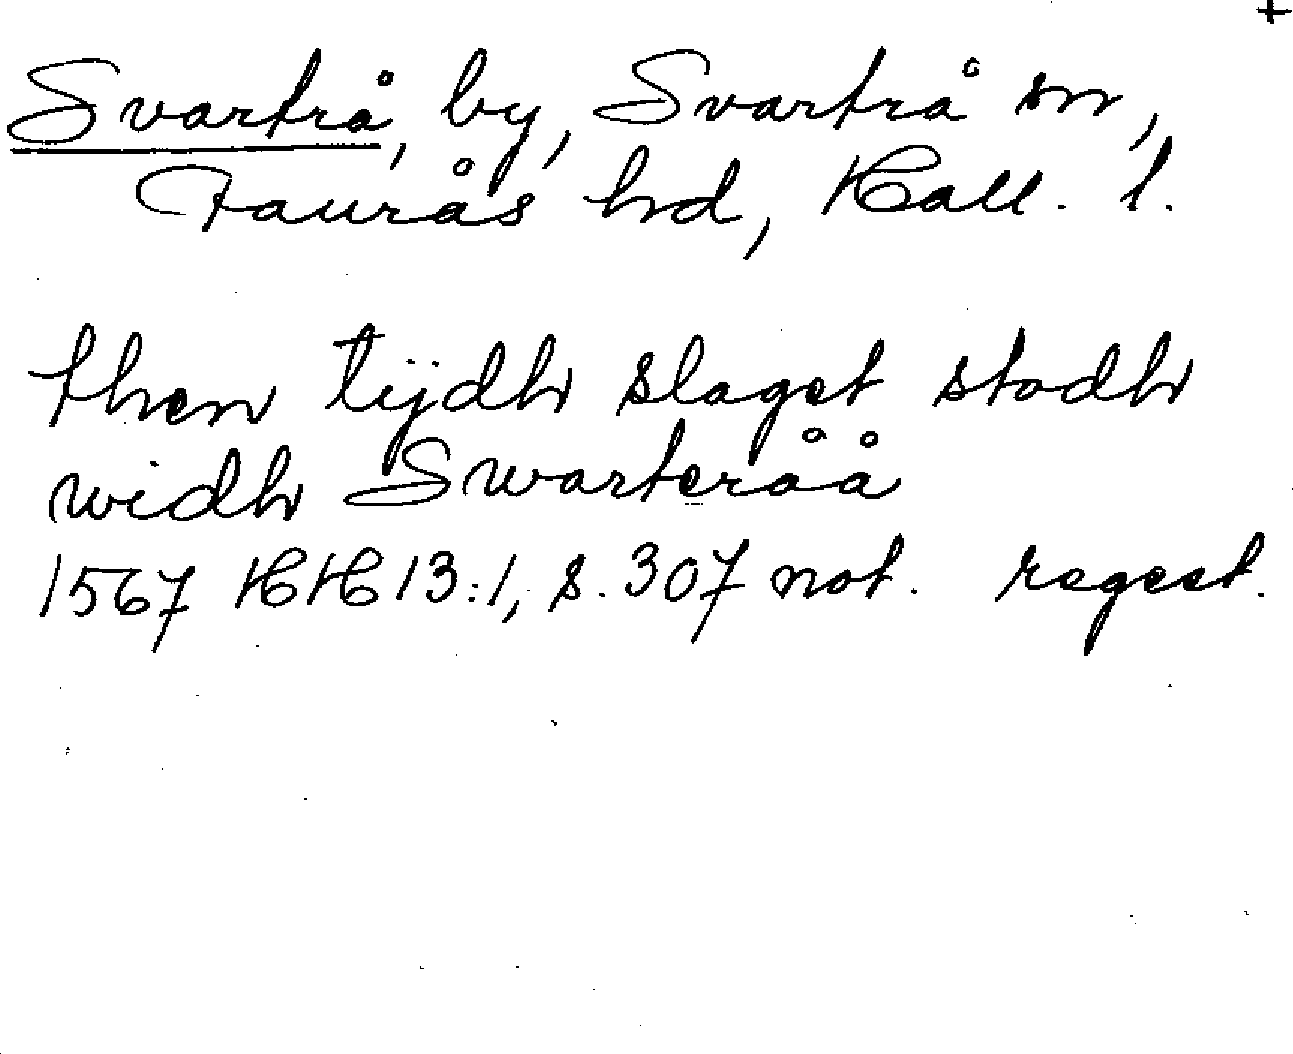 +
Svartrå, by, Svartrå sn,
Faurås hd, Hall. l.
then tijdh slaget stodh
widh Swarteråå
1567 HH 13:1, s. 307 not. regest.